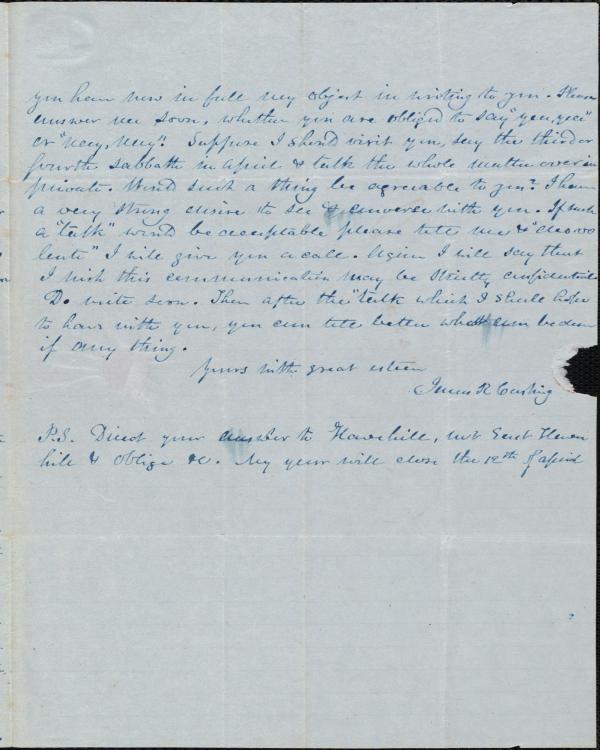 you have now in full my object in writing to you. Please
answer me soon, whether you are obliged to say "yea, yea"
or "nay, nay". Suppose I should visit you, say the third or
fourth sabbath in April & talk the whole matter over in
private. Would such a thing be agreeable to you? I have
a very strong desire to see & converse with you. If such
a "talk" would be acceptable please tell me & "deo vo
lente" I will give you a call. Again I will say that
I wish this communication may be strictly confidential
Do write soon. Then after the "talk which I shall hope
to have with you, you can tell better what can be done
if any thing.
Yours with great esteem
James R Cushing
P.S. Direct your answer to Haverhill, not East Haver
hill & oblige &c. My year will close the 12th of April